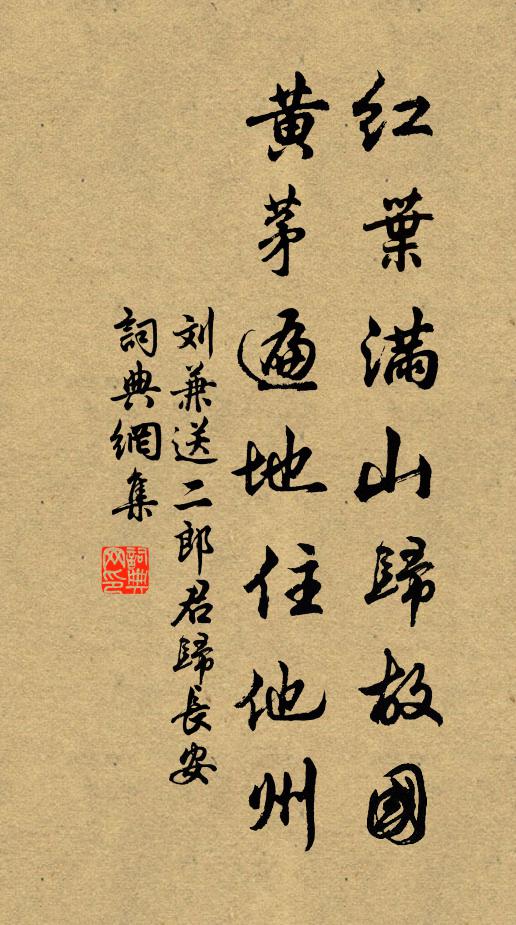 红葉滿山歸故國
黃茅遍地住他州
刘兼送二郎君歸長安
詞典網集
詞典网印